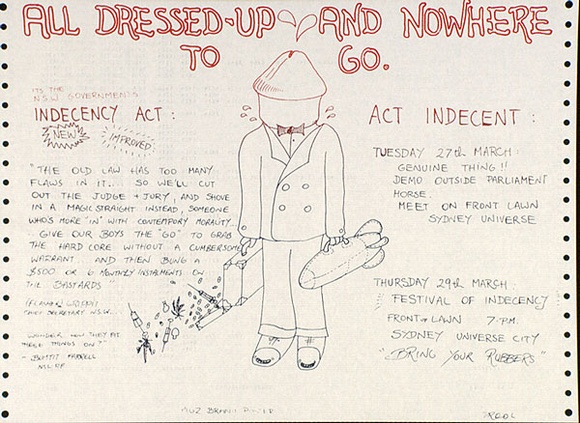 ALL DRESSED-UP AND NOWHERE
TO GO.
ITS THE
N.S.W GOVERNMENTS
INDECENCY ACT :
NEW
IMPROVED
"THE OLD LAW HAS TOO MANY
FLAWS IN IT... SO WE'LL CUT
OUT THE JUDGE + JURY, AND SHOVE
IN A MAGICSTRAIGHT INSTEAD, SOMEONE
WHO'S MORE 'IN' WITH CONTEMPORY MORALITY...
GIVE OUR BOYS THE "GO" TO GRAB
THE HARD CORE WITHOUT A CUMBERSOME
WARRANT. AND THEN BUNG A
$500 OR 6 MONTHLY INSTALMENTS ON
THE BASTARDS"
CHIEF SECRETARY N.S.W.
WONDER HOW THEY FIT
THESE THINGS ON?"
ACT INDECENT :
TUESDAY 27th MARCH
GENUINE THING!!
DEMO OUTSIDE PARLIAMENT
HORSE.
MEET ON FRONT LAWN
SYDNEY UNIVERSE
THURSDAY 29th MARCH
FESTIVAL OF INDECENCY
FRONT LAWN 7 P.M.
SYDNEY UNIVERSE CITY
"BRING YOUR RUBBERS"